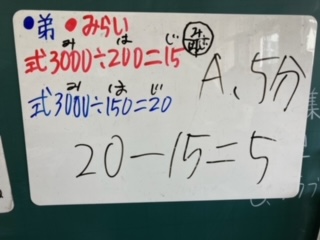 ●弟 ●みらい
み は じ
式3000÷200=15
み は じ
式3000÷150=20
A、5分
20-15=5